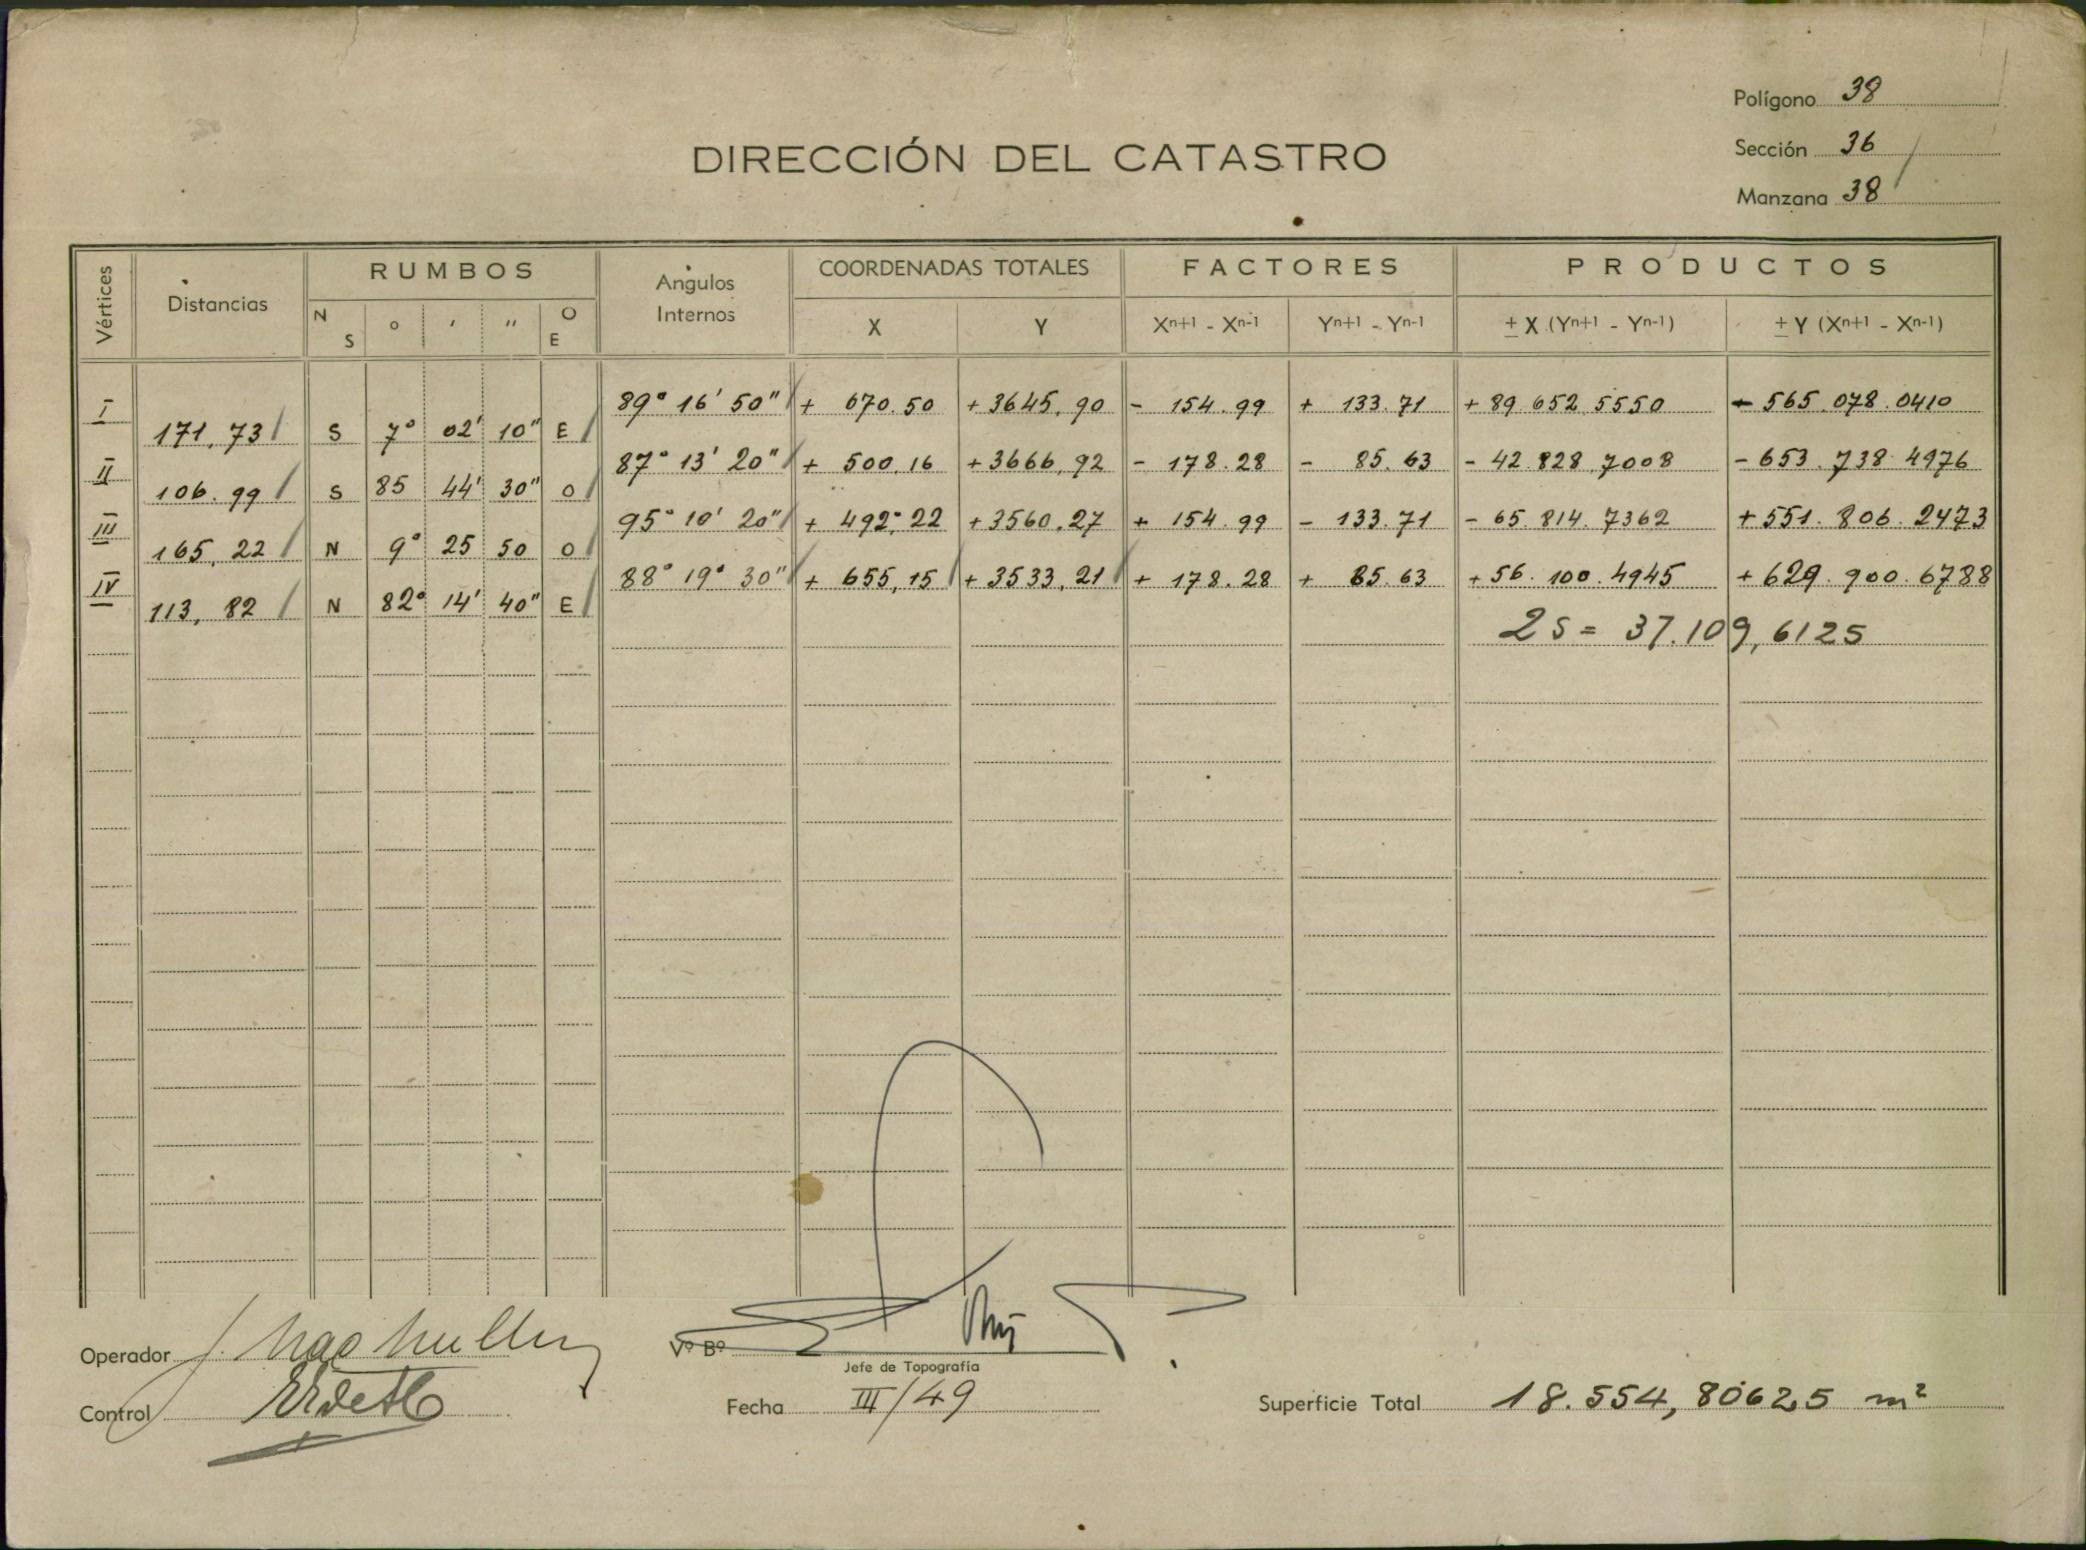 Polígono 38
Sección 36
Manzana 38
DIRECCIÓN DEL CATASTRO
Vértices Distancias RUMBOS Angulos Internos COORDENADAS TOTALES FACTORES PRODUCTOS
N S ° ' " O E X Y Xn+1 - Xn-1 Yn+1 - Yn-1 ± X (Yn+1 - Yn-1) ± Y (Xn+1 - Xn-1)
I 89° 16' 50" + 670.50 +3645,90 - 154.99 + 133.71 + 89.652.5550 - 565.078.0410
171,73 S 7° 02' 10" E
II 87° 13' 20" + 500.16 +3666,92 - 178.28 - 85.63 - 42.828.7008 - 653.738.4976
106.99 S 85 44' 30" O
III 95° 10' 20" + 492.22 +3560.27 + 154.99 - 133.71 - 65.814.7362 + 551.806.2473
165,22 N 9° 25 50 O
IV 88° 19° 30" + 655,15 + 3533,21 + 178.28 + 85.63 + 56.100.4945 + 629.900.6788
113,82 N 82° 14' 40" E
2S = 37.109,6125
Operador
Vº Bº
Jefe de Topografía
Control
Fecha III/49
Superficie Total 18.554,80625 m²